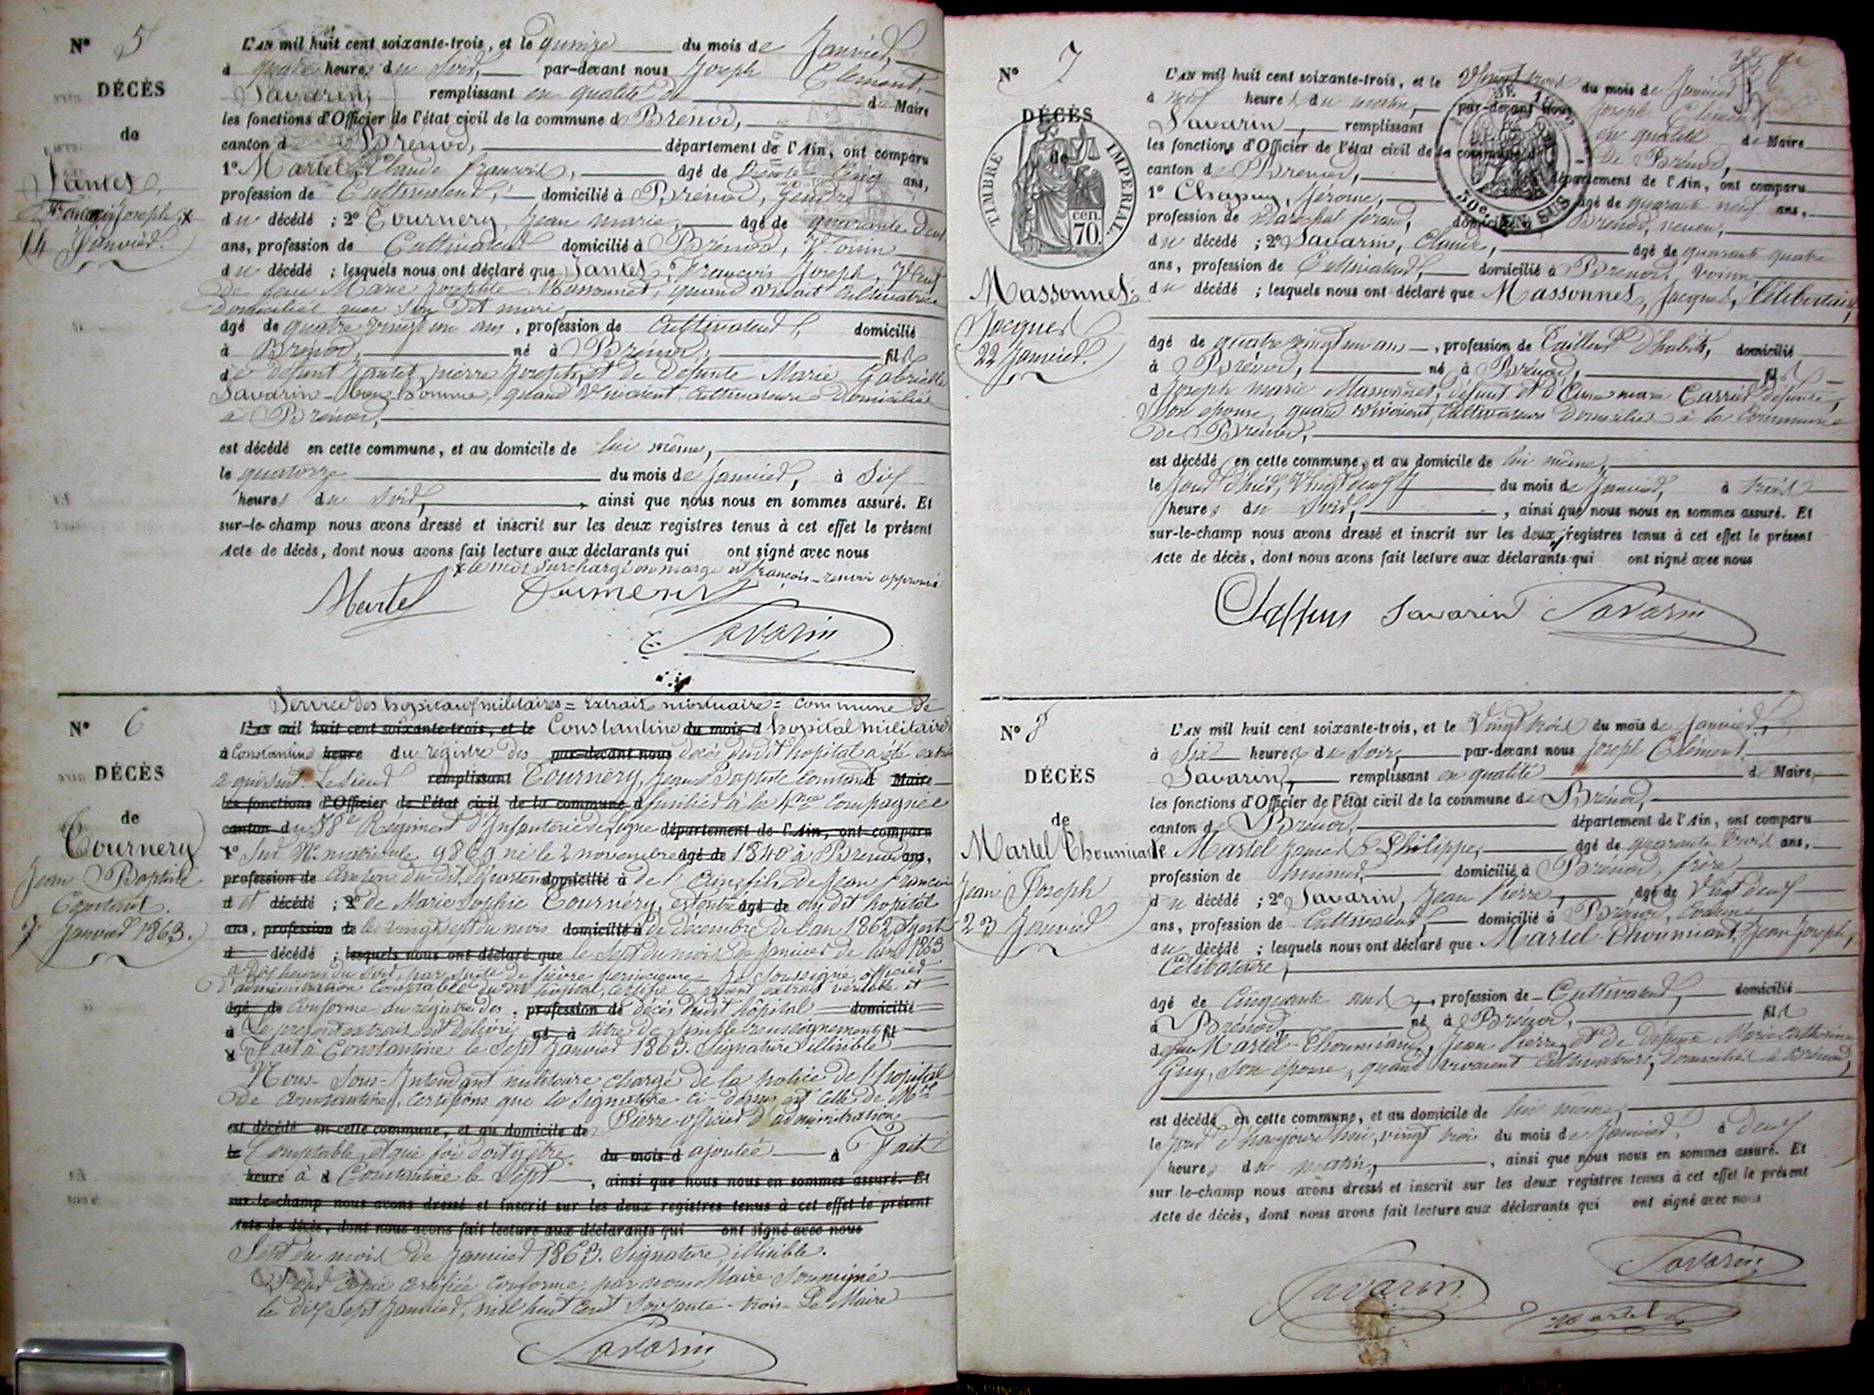 N° 5
DÉCÈS
de
Jantet,
François Joseph, x
14 Janvier.
L'AN mil huit cent soixante-trois, et le quinze du mois de Janvier,
à quatre heures du soir, par-devant nous Joseph Clément
Savarin, remplissant en qualité de Maire
les fonctions d'Officier de l'état civil de la commune d Brenod,
canton de Brenod, département de l'Ain, ont comparu
1° Martel Claude françois, âgé de trente cinq ans,
profession de Cultivateur, domicilié à Brénod, gendre
du décédé ; 2° Tournery Jean marie, âgé de quarante deux
ans, profession de Cultivateur domicilié à Brénod, Voisin
du décédé ; lesquels nous ont déclaré que Jantet, François Joseph, Veuf
de feue Marie Josephte Massonnet, quand vivait Cultivatrice
domiciliée avec son dit mari,
âgé de quatre vingt un ans, profession de Cultivateur, domicilié
à Brénod, né à Brénod, fils
de défunt Jantet pierre Joseph, et de défunte Marie Gabrielle
Savarin - Bonhomme, quand vivaient Cultivateurs domiciliés
à Brénod,
est décédé en cette commune, et au domicile de lui même,
le quatorze du mois de Janvier, à Six
heures du soir, ainsi que nous nous en sommes assuré. Et
sur-le-champ nous avons dressé et inscrit sur les deux registres tenus à cet effet le présent
Acte de décès, dont nous avons fait lecture aux déclarants qui ont signé avec nous
x le mot surchargé en marge est françois - renvoi approuvé
Martel
Savarin
N° 6
DÉCÈS
de
Tournery
Jean Baptiste
Constant.
7 Janvier 1863.
Service des hopitaux militaires = Extrait mortuaire = Commune de
L'AN mil huit cent soixante-trois, et le Constantine du mois d hopital militaire
à Constantine heure du registre des par-devant nous décès dudit hopital a été extrait
ce qui suit. Le Sieur remplissant Tournery, Jean Baptiste Constant d Maire
les fonctions d'Officier de l'état civil de la commune d fusilier à la Compagnie
canton du 38e Régiment d'Infanterie de ligne département de l'Ain, ont comparu
1° Sur N° matricule 9869 né le 2 novembre âgé de 1840 à Brenod ans,
profession de Canton dudit, département domicilié à de l'Ain, fils de Jean François
d et décédé ; 2° de Marie Sophie Tournery, est entré âgé de au dit hopital
ans, profession de le vingt sept du mois domicilié à de décembre de l'an 1862,
d décédé ; lesquels nous ont déclaré que le sept du mois de Janvier de l'an 1863
à dix heures du Soir, par suite de fièvre pernicieuse. Je soussigné officier
d'administration Comptable du dit hopital, certifie le présent extrait véritable et
âgé de Conforme au registre des profession de décès dudit hôpital domicilié
à Le présent extrait est délivré né à titre de Simple renseignement fil
d Fait à Constantine le Sept Janvier 1863. Signature illisible
Nous Sous-Intendant militaire chargé de la police de l'hopital
de Constantine, certifions que la signature ci-dessus est celle de Mr
est décédé en cette commune, et au domicile de Pierre officier d'administration
le Comptable, et que foi doit y être du mois d ajoutée à Fait
heure à d Constantine le Sept, ainsi que nous nous en sommes assuré. Et
sur-le-champ nous avons dressé et inscrit sur les deux registres tenus à cet effet le présent
Acte de décès, dont nous avons fait lecture aux déclarants qui ont signé avec nous
Sept du mois de Janvier 1863. Signature illisible.
Pour Copie certifiée conforme, par nous Maire Soussigné
le dix Sept Janvier, mil huit cent Soixante-trois - Le Maire
Savarin
N° 7
DÉCÈS
de
TIMBRE IMPERIAL
70. cen.
Massonnet,
Jacques
22 Janvier.
L'AN mil huit cent soixante-trois, et le Vingt trois du mois de Janvier
à neuf heures du matin, par-devant nous Joseph Clément
Savarin, remplissant en qualité de Maire
les fonctions d'Officier de l'état civil de la commune d de Brénod,
canton de Brénod, département de l'Ain, ont comparu
1° Chapuy, Jérome, âgé de quarante neuf ans,
profession de Maréchal ferant, domicilié à Brénod, neveu,
du décédé ; 2° Savarin, Claude, âgé de quarante quatre
ans, profession de Cultivateur, domicilié à Brénod, voisin
du décédé ; lesquels nous ont déclaré que Massonnet, Jacques, Célibataire,
âgé de quatre vingt un ans, profession de Tailleur d'habits, domicilié
à Brénod, né à Brénod, fils
d Joseph marie Massonnet, défunt et d'Anne marie Carrier défunte,
son épouse, quand vivaient, Cultivateurs domiciliés à la Commune
de Brénod,
est décédé en cette commune, et au domicile de lui même,
le jour d'hier, Vingt deux du mois de Janvier, à trois
heures du soir, ainsi que nous nous en sommes assuré. Et
sur-le-champ nous avons dressé et inscrit sur les deux registres tenus à cet effet le présent
Acte de décès, dont nous avons fait lecture aux déclarants qui ont signé avec nous
Savarin Savarin
N° 8
DÉCÈS
de
Martel Thoumiand
Jean Joseph
23 Janvier
L'AN mil huit cent soixante-trois, et le Vingt trois du mois de Janvier,
à Six heures du Soir, par-devant nous Joseph Clément
Savarin, remplissant en qualité d Maire
les fonctions d'Officier de l'état civil de la commune de Brénod,
canton d Brénod, département de l'Ain, ont comparu
1° Martel James Philippe, âgé de quarante trois ans,
profession de domicilié à Brénod, frère
du décédé ; 2° Savarin, Jean Pierre, âgé de Vingt deux
ans, profession de Cultivateur, domicilié à Brénod,
du décédé ; lesquels nous ont déclaré que Martel Thoumiand, Jean Joseph,
Célibataire,
âgé de Cinquante ans, profession de Cultivateur, domicilié
à Brénod, né à Brénod, fils
de feu Martel-Thoumiand, Jean Pierre, et de défunte Marie Catherine
Guy, Son épouse, quand vivaient Cultivateurs, domiciliés à Brénod,
est décédé en cette commune, et au domicile de lui même,
le jour d'haujourd'hui, vingt trois du mois de Janvier, à deux
heures du matin, ainsi que nous nous en sommes assuré. Et
sur le-champ nous avons dressé et inscrit sur les deux registres tenus à cet effet le présent
Acte de décès, dont nous avons fait lecture aux déclarants qui ont signé avec nous
Savarin
Savarin
Martel